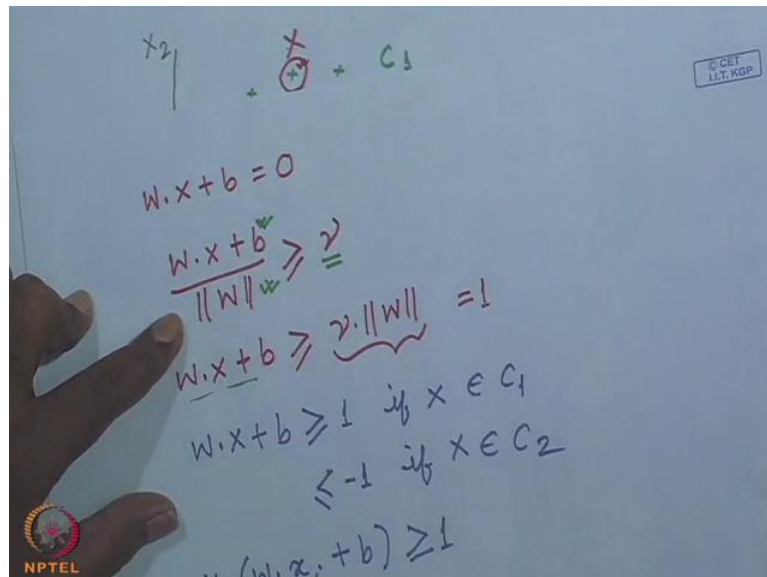 X2 X
+ + + C1
© CET
I.I.T. KGP
W.X + b = 0
W.X + b / ||W|| ≥ γ
W.X + b ≥ γ.||W|| = 1
W.X + b ≥ 1 if X ∈ C1
≤ -1 if X ∈ C2
(W.X. + b) ≥ 1
NPTEL